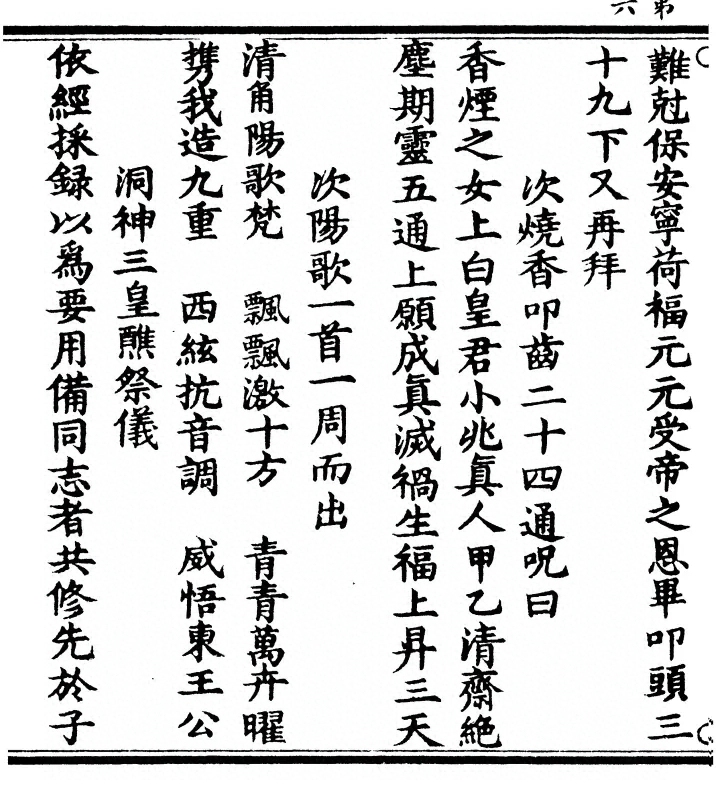 第六
難尅保安寧荷福元元受帝之恩畢叩頭三
十九下又再拜
次燒香叩齒二十四通呪曰
香煙之女上白皇君小兆眞人甲乙清齋絶
塵期靈五通上願成眞滅禍生福上昇三天
次陽歌一首一周而出
清角陽歌梵 飄飄激十方 青青萬卉曜
携我造九重 西絃抗音調 威悟東王公
洞神三皇醮祭儀
依經採録以爲要用備同志者共修先於子